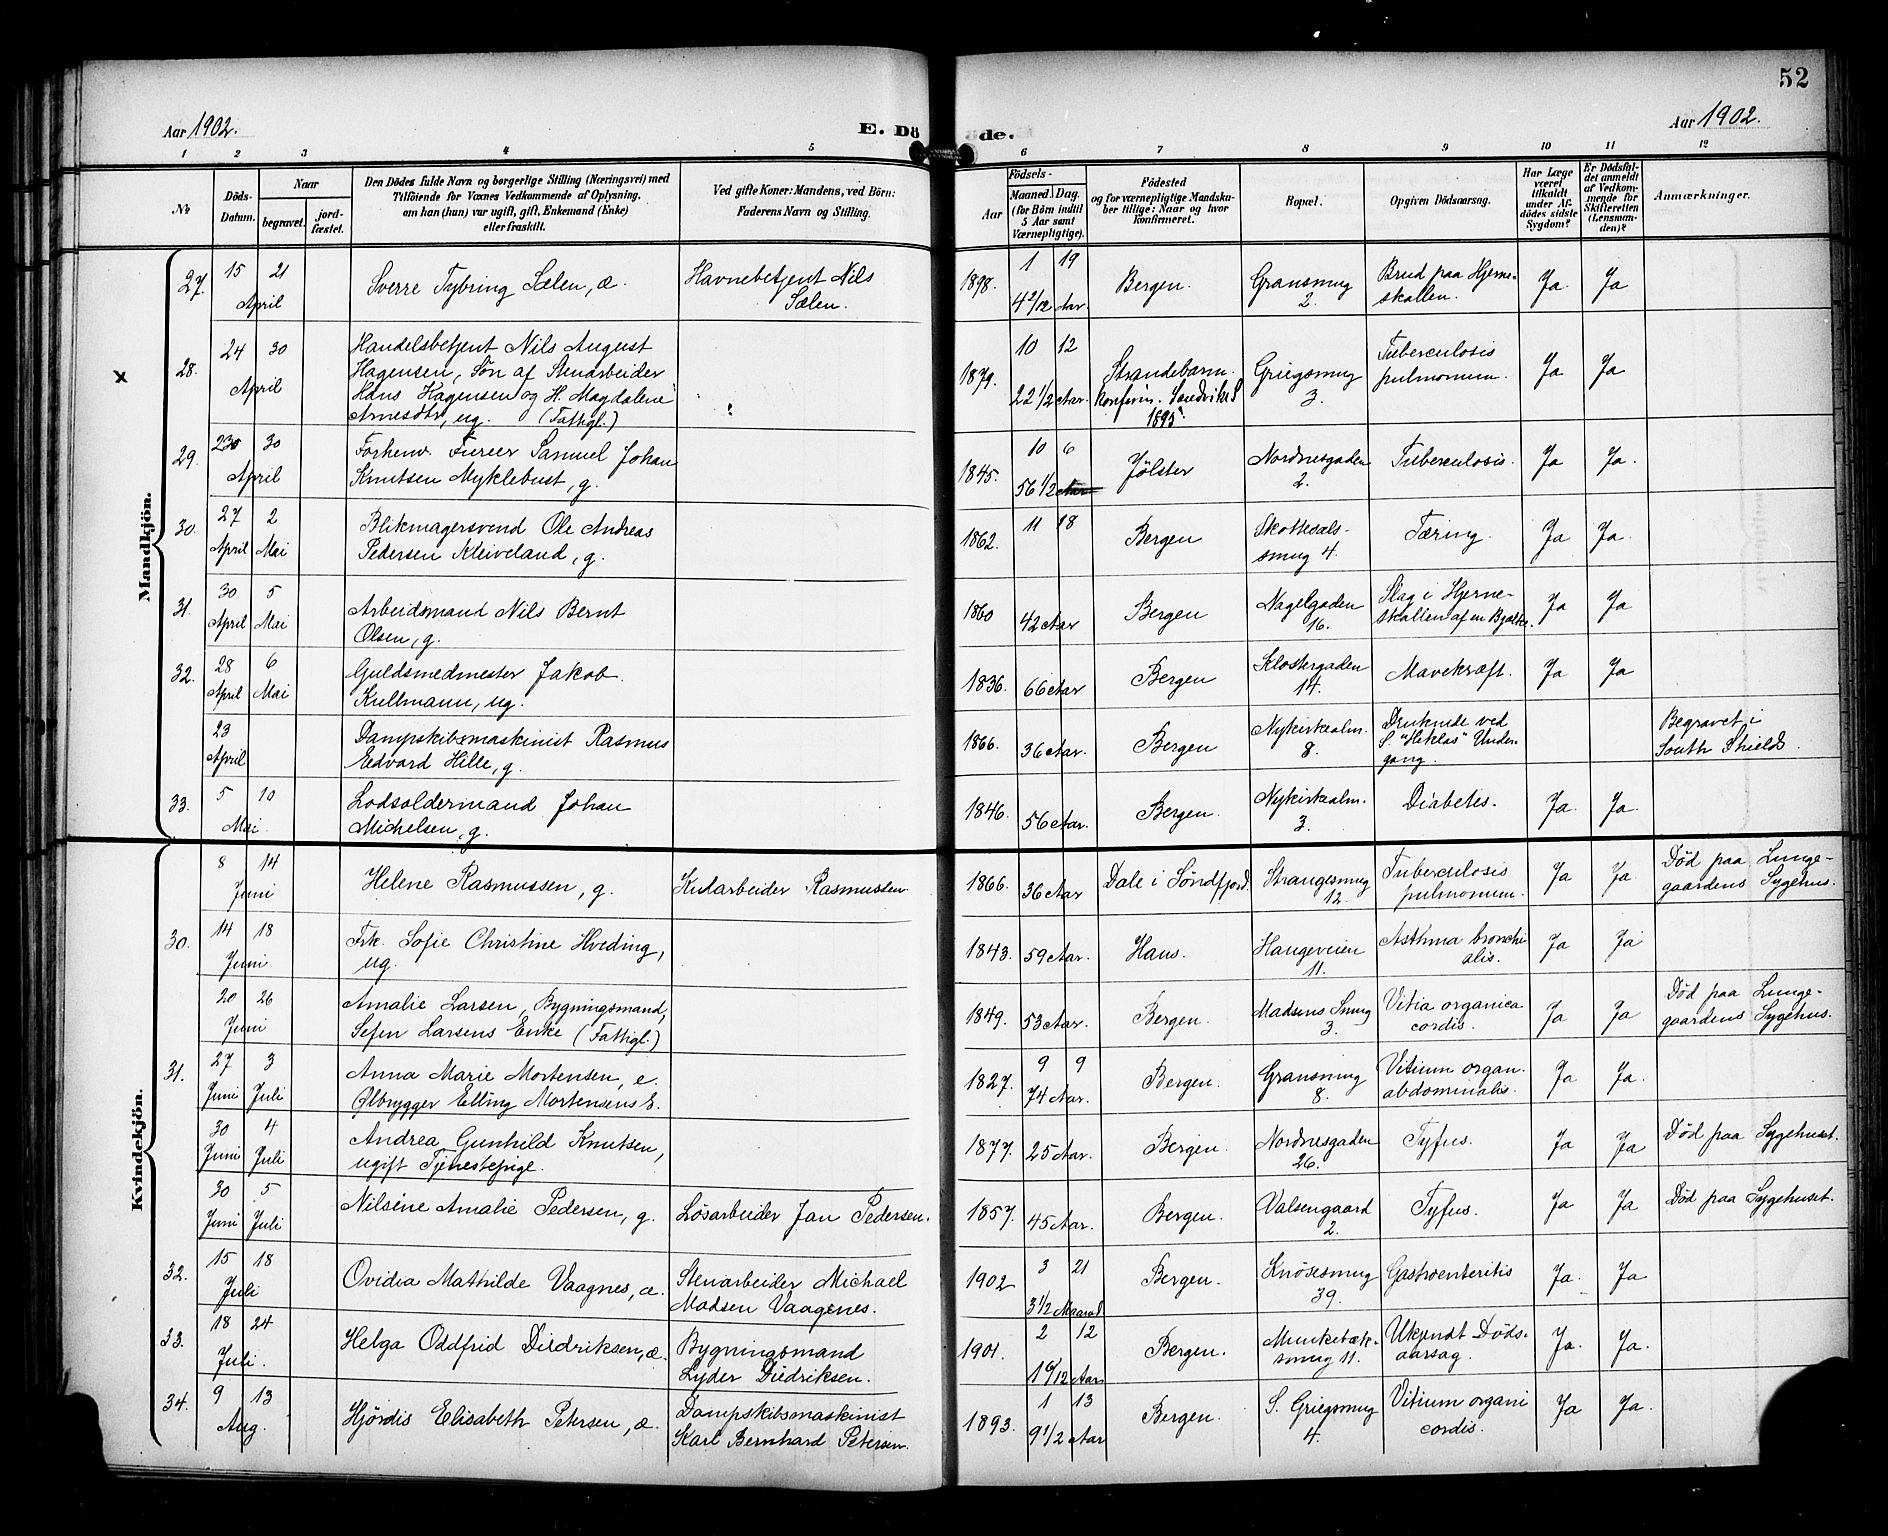 52
Aar 1902.
E. Döde.
Aar 1902.
1 2 3 4 5 6 7 8 9 10 11 12
No
Döds-Datum.
Naar
begravet.
jordfæstet.
Den Dödes fulde Navn og borgerlige Stilling (Næringsvei) med
Tilföiende for Voxnes Vedkommende af Oplysning,
om han (hun) var ugift, gift, Enkemand (Enke)
eller fraskilt.
Ved gifte Koner: Mandens, ved Börn:
Faderens Navn og Stilling.
Födsels-
Aar
Maaned. Dag.
(for Börn indtil
5 Aar samt
Værnepligtige).
Födested
og for værnepligtige Mandskaber
tillige: Naar og hvor
Konfirmeret.
Bopæl.
Opgiven Dödsaarsag.
Har Læge
været
tilkaldt
under Afdödes
sidste
Sygdom?
Er Dödsfaldet
anmeldt
af Vedkommende
for
Skifteretten
(Lensmanden)?
Anmærkninger.
Mandkjön.
27. 15 21 April
Sverre Tybring Sælen, æ.
Havnebetjent Nils
Sælen.
1898. 1 19
4 2/12 Aar.
Bergen.
Gransmug
2.
Brud paa Hjerne-
skallen.
Ja. Ja
x
28. 24 30 April
Handelsbetjent Nils August
Hagensen, Søn af Stenarbeider
Hans Hagensen og H. Magdalene
Arnesdtr, ug. (Fattigl.)
1879. 10 12
22 1/2 Aar.
Strandebarm.
konfirm. Sandviken
1895.
Griegsmug
3.
Tuberculosis
pulmonum.
Ja Ja
29. 30 April
Forhenv. Furer Samuel Johan
Knutsen Myklebust, g.
1845. 10 6
56 1/2 Aar
Jølster
Nordnesgaden
2.
Tuberculosis.
Ja Ja.
30. 27 2
April Mai
Blikmagersvend Ole Andreas
Pedersen Kleiveland, g.
1862. 11 18
Bergen
Skottesals-
smug 4.
Tæring.
Ja Ja.
31. 30 5
April Mai
Arbeidsmand Nils Bernt
Olsen, g.
1860 42 Aar
Bergen
Nagelgaden
16.
Slag i Hjerne-
skallen af en Bjælke.
Ja Ja
32. 28 6
April Mai
Guldsmedmester Jakob
Kullmann, ug.
1836. 66 Aar
Bergen
Klostergaden
14.
Mavekræft.
Ja Ja
23
April
Dampskibsmaskinist Rasmus
Edvard Hille, g.
1866. 36 Aar.
Bergen
Nykirkealm.
8.
Druknede ved
S. "Heklas" Under-
gang.
Begravet i
South Shields.
33. 5 10
Mai.
Lodsoldermand Johan
Michelsen, g.
1846. 56 Aar.
Bergen.
Nykirkealm.
3.
Diabetes.
Ja. Ja.
Kvindekjön.
8 14
Juni
Helene Rasmussen, g.
Kularbeider Rasmussen
1866. 36 Aar
Dale i Søndfjord.
Strangesmug
12.
Tuberculosis
pulmonum.
Ja Ja.
Død paa Lunge-
gaardens Sygehus.
30. 14 18
Juni
Frk. Sofie Christine Hveding,
ug.
1843. 59 Aar.
Haus.
Haugeveien
11.
Asthma bronchi-
alis.
Ja Ja
20 26
Juni
Amalie Larsen, Bygningsmand,
Sefen Larsens Enke (Fattigl.)
1849. 53 Aar.
Bergen.
Madsens Smug
3.
Vitia organica
cordis.
Ja Ja
Død paa Lunge-
gaardens Sygehus.
31. 27 3
Juni Juli
Anna Marie Mortensen, e.
Ølbrygger Elling Mortensens E.
1827. 9 9
74 Aar.
Bergen.
Gransmug
8.
Vitium organ.
abdominalis.
Ja Ja.
30 4
Juni Juli
Andrea Gunhild Knutsen,
ugift Tjenestepige.
1877. 25 Aar.
Bergen.
Nordnesgaden
26.
Tyfus.
Ja Ja
Død paa Sygehuset.
30 5
Juni Juli
Nilsine Amalie Pedersen, g.
Løsarbeider Jan Pedersen.
1857. 45 Aar.
Bergen.
Valsengaard
2.
Tyfus.
Ja Ja
Død paa Sygehuset.
32. 15 18
Juli
Ovidia Mathilde Vaagnes, æ.
Stenarbeider Michael
Madsen Vaagenes.
1902 3 21
3 1/2 Maaned
Bergen.
Knøsesmug
39.
Gastroenteritis
Ja. Ja
33. 18 24
Juli.
Helga Oddfrid Didriksen, æ.
Bygningsmand
Lyder Diedriksen.
1901. 2 12
Bergen.
Munkebæk-
smug 11.
Ukjendt Døds-
aarsag.
Ja. Ja.
34. 9 13
Aug.
Hjørdis Elisabeth Petersen, æ.
Dampskibsmaskinist
Karl Bernhard Petersen.
1893. 1 13
9 1/2 Aar
Bergen.
S. Griegsmug
4.
Vitium organi
cordis.
Ja Ja.